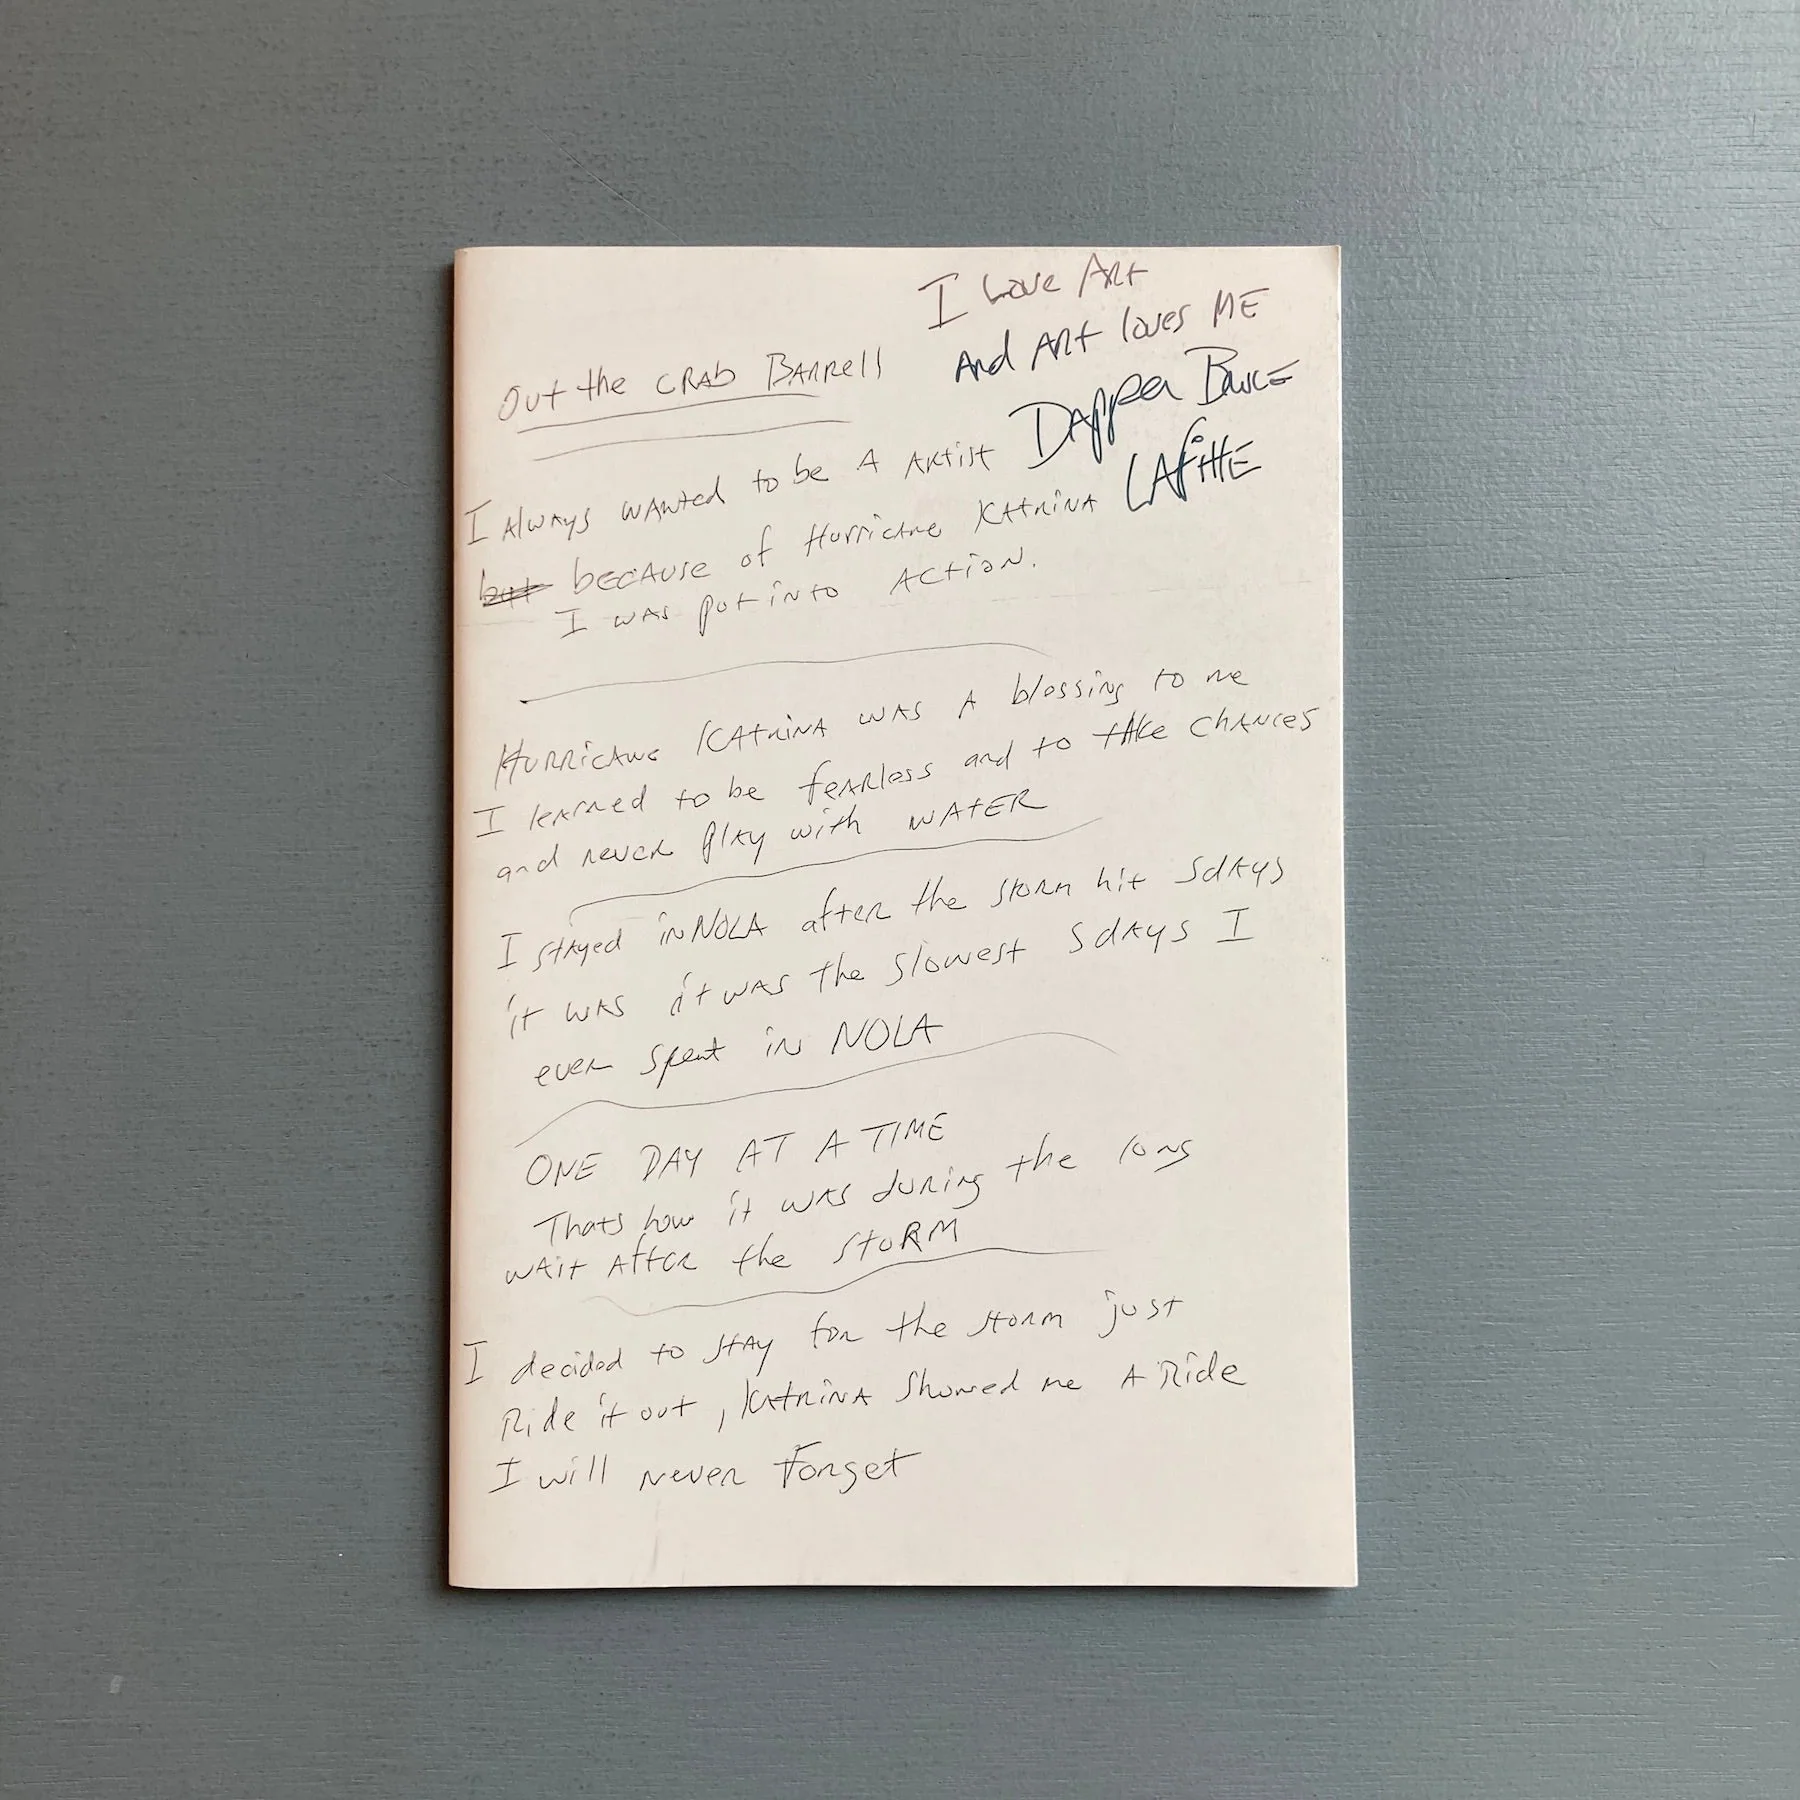 I Love ARt
And ARt loves ME
DAppeR BRuCE
LAfittE
Out the CRAb BARRell
I AlwAys wANted to be A ARtist
but becAuse of HurricANe KAtRiNA
I wAs put into ACtioN.
HuRRicANe KAtRiNA wAs A blessing to me
I leARned to be feARless and to tAke chANces
and neveR plAy with wAtER
I stAyed in NOLA afteR the stoRm hit 5 dAys
it wAs it wAs the slowest 5 dAys I
eveR spent in NOLA
ONE DAY AT A TIME
Thats how it wAs duRing the long
wAit AfteR the StoRM
I decided to stAy foR the stoRm just
Ride it out, KAtRiNA showed me A Ride
I will NeveR Forget